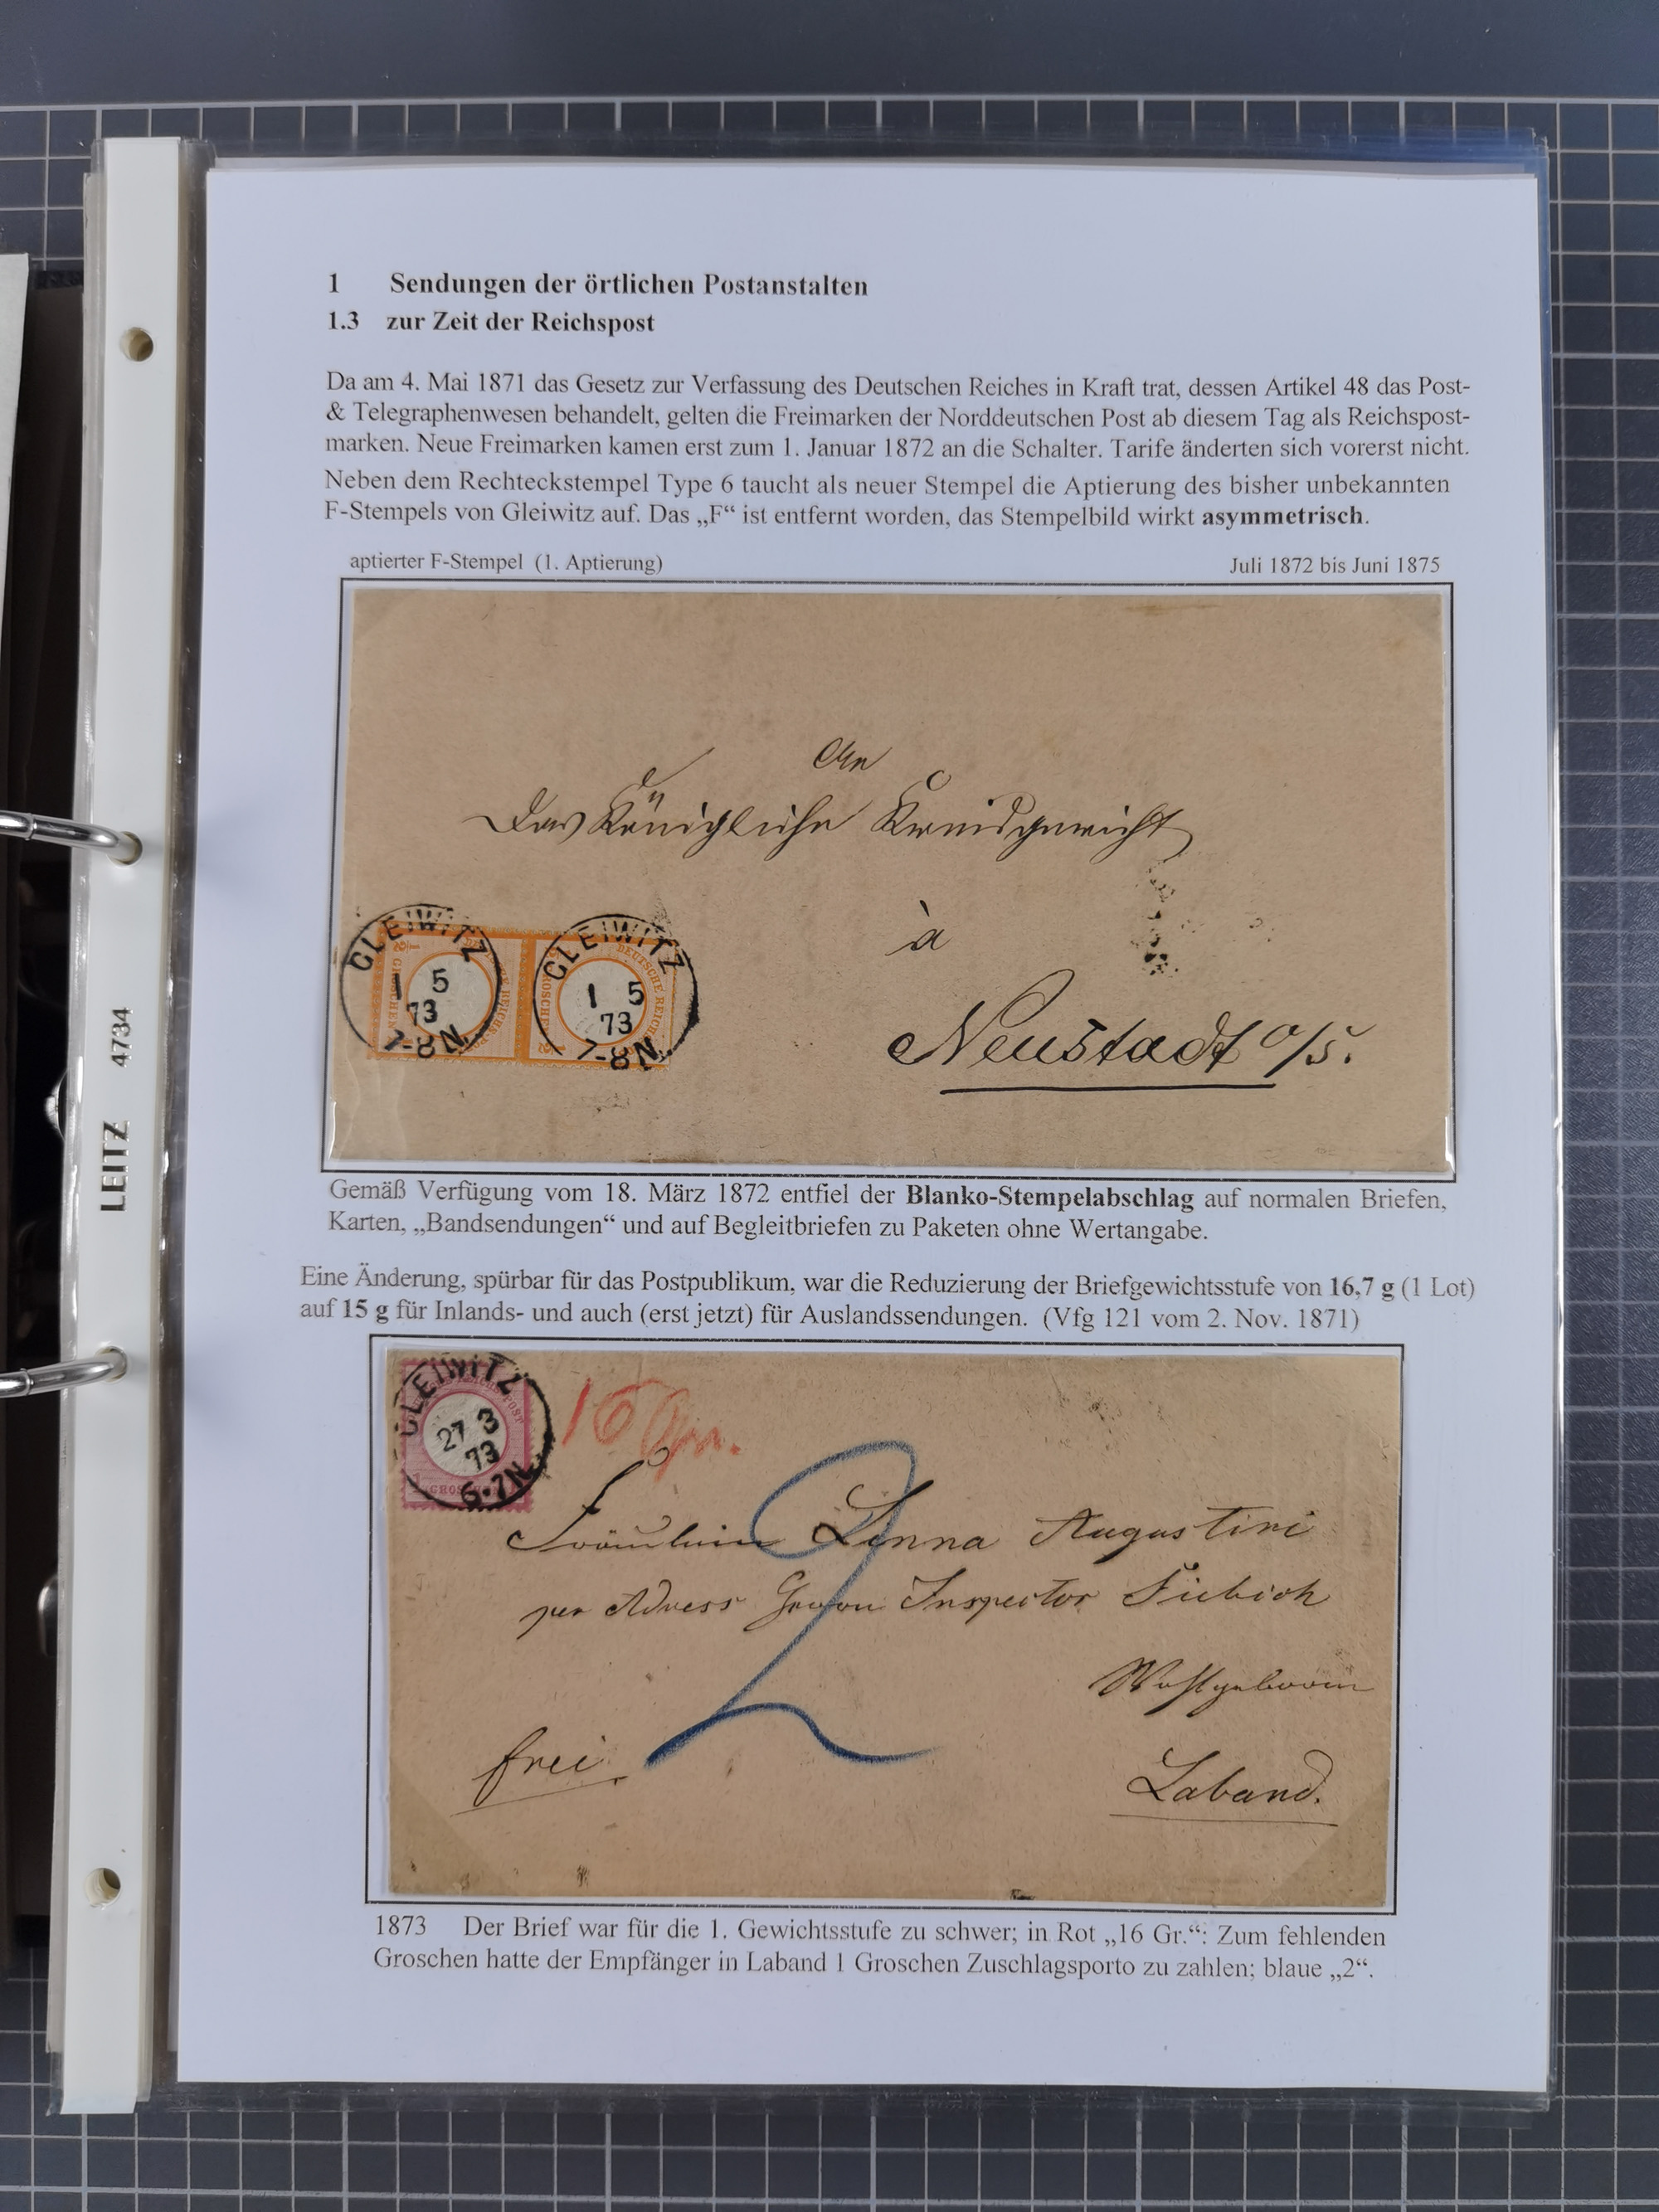 1 Sendungen der örtlichen Postanstalten
1.3 zur Zeit der Reichspost
Da am 4. Mai 1871 das Gesetz zur Verfassung des Deutschen Reiches in Kraft trat, dessen Artikel 48 das Post-
& Telegraphenwesen behandelt, gelten die Freimarken der Norddeutschen Post ab diesem Tag als Reichspost-
marken. Neue Freimarken kamen erst zum 1. Januar 1872 an die Schalter. Tarife änderten sich vorerst nicht.
Neben dem Rechteckstempel Type 6 taucht als neuer Stempel die Aptierung des bisher unbekannten
F-Stempels von Gleiwitz auf. Das „F“ ist entfernt worden, das Stempelbild wirkt asymmetrisch.
aptierter F-Stempel (1. Aptierung) Juli 1872 bis Juni 1875
An
Das Königliche Kreisgericht
à
Neustadt o/S.
GLEIWITZ
1 5
73
7-8N
GLEIWITZ
1 5
73
7-8N
DEUTSCHE REICHS
Gemäß Verfügung vom 18. März 1872 entfiel der Blanko-Stempelabschlag auf normalen Briefen,
Karten, „Bandsendungen“ und auf Begleitbriefen zu Paketen ohne Wertangabe.
Eine Änderung, spürbar für das Postpublikum, war die Reduzierung der Briefgewichtsstufe von 16,7 g (1 Lot)
auf 15 g für Inlands- und auch (erst jetzt) für Auslandssendungen. (Vfg 121 vom 2. Nov. 1871)
GLEIWITZ
27 3
73
6-7N
16 Gr.
2
Fräulein Linna Augustini
per Adress Herrn Inspector Fiebich
Wohlgeboren
frei.
Laband.
1873 Der Brief war für die 1. Gewichtsstufe zu schwer; in Rot „16 Gr.“: Zum fehlenden
Groschen hatte der Empfänger in Laband 1 Groschen Zuschlagsporto zu zahlen; blaue „2“.
LEITZ 4734